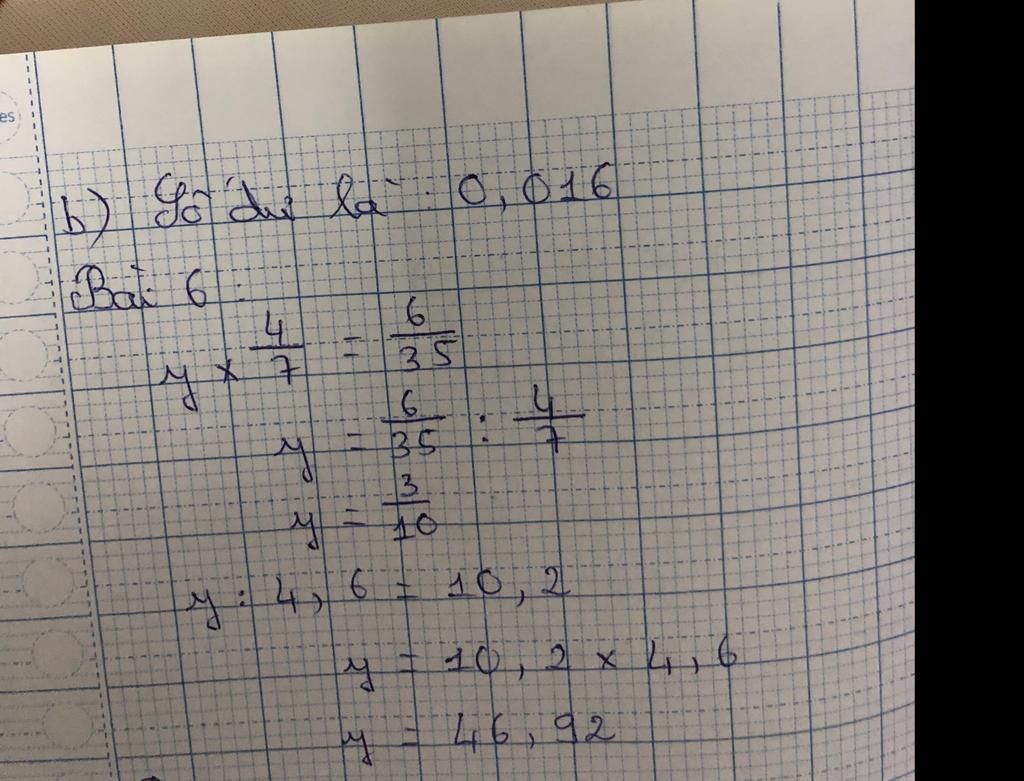 es
b) Số dư là : 0,016
Bài 6 :
y × 4/7 = 6/35
y = 6/35 : 4/7
y = 3/10
y : 4,6 = 10,2
y = 10,2 × 4,6
y = 46,92